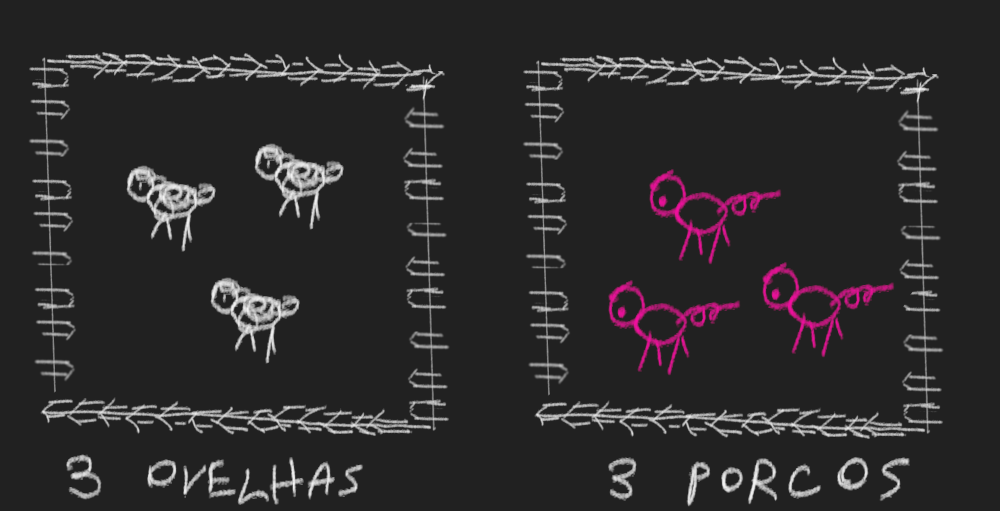 3 OVELHAS
3 PORCOS